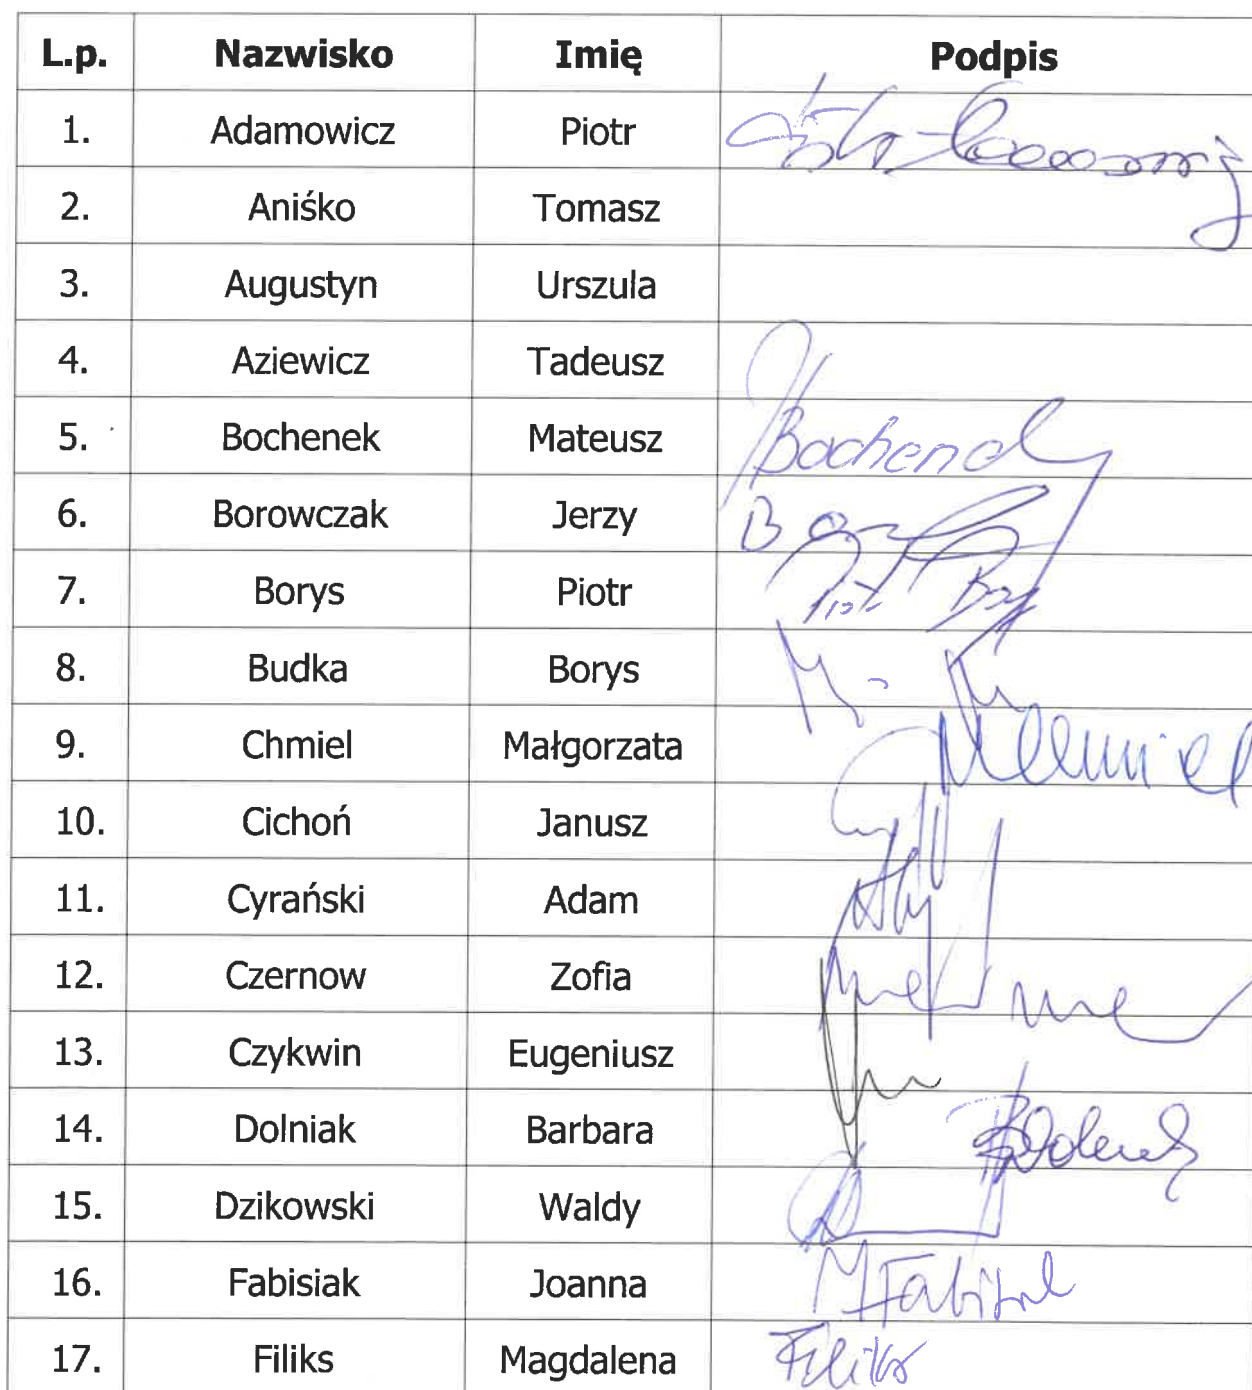 L.p. Nazwisko Imię Podpis
1. Adamowicz Piotr
2. Aniśko Tomasz
3. Augustyn Urszula
4. Aziewicz Tadeusz
5. Bochenek Mateusz
6. Borowczak Jerzy
7. Borys Piotr
8. Budka Borys
9. Chmiel Małgorzata
10. Cichoń Janusz
11. Cyrański Adam
12. Czernow Zofia
13. Czykwin Eugeniusz
14. Dolniak Barbara
15. Dzikowski Waldy
16. Fabisiak Joanna
17. Filiks Magdalena Filiks